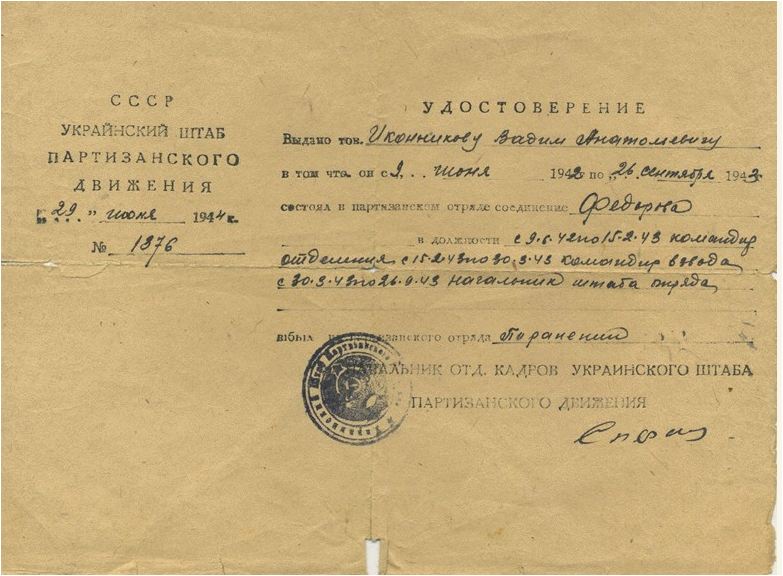 СССР
УКРАЇНСКИЙ ШТАБ
ПАРТИЗАНСКОГО
ДВИЖЕНИЯ
"29" июня 1944 г.
№ 1376
УДОСТОВЕРЕНИЕ
Выдано тов. Иконникову Вадим Анатолевичу
в том что он с 9 июня 1942 по 26 сентября 1943
состоял в партизанском отряде соединение Федорова
в должности с 9.6.42 по 15.2.43 командир
отделения, с 15.2.43 по 30.3.43 командир взвода,
с 30.3.43 по 26.9.43 начальник штаба отряда
вібыл из партизанского отряда По ранению
НАЧАЛЬНИК ОТД. КАДРОВ УКРАИНСКОГО ШТАБА
ПАРТИЗАНСКОГО ДВИЖЕНИЯ
Украинский Штаб Партизанского